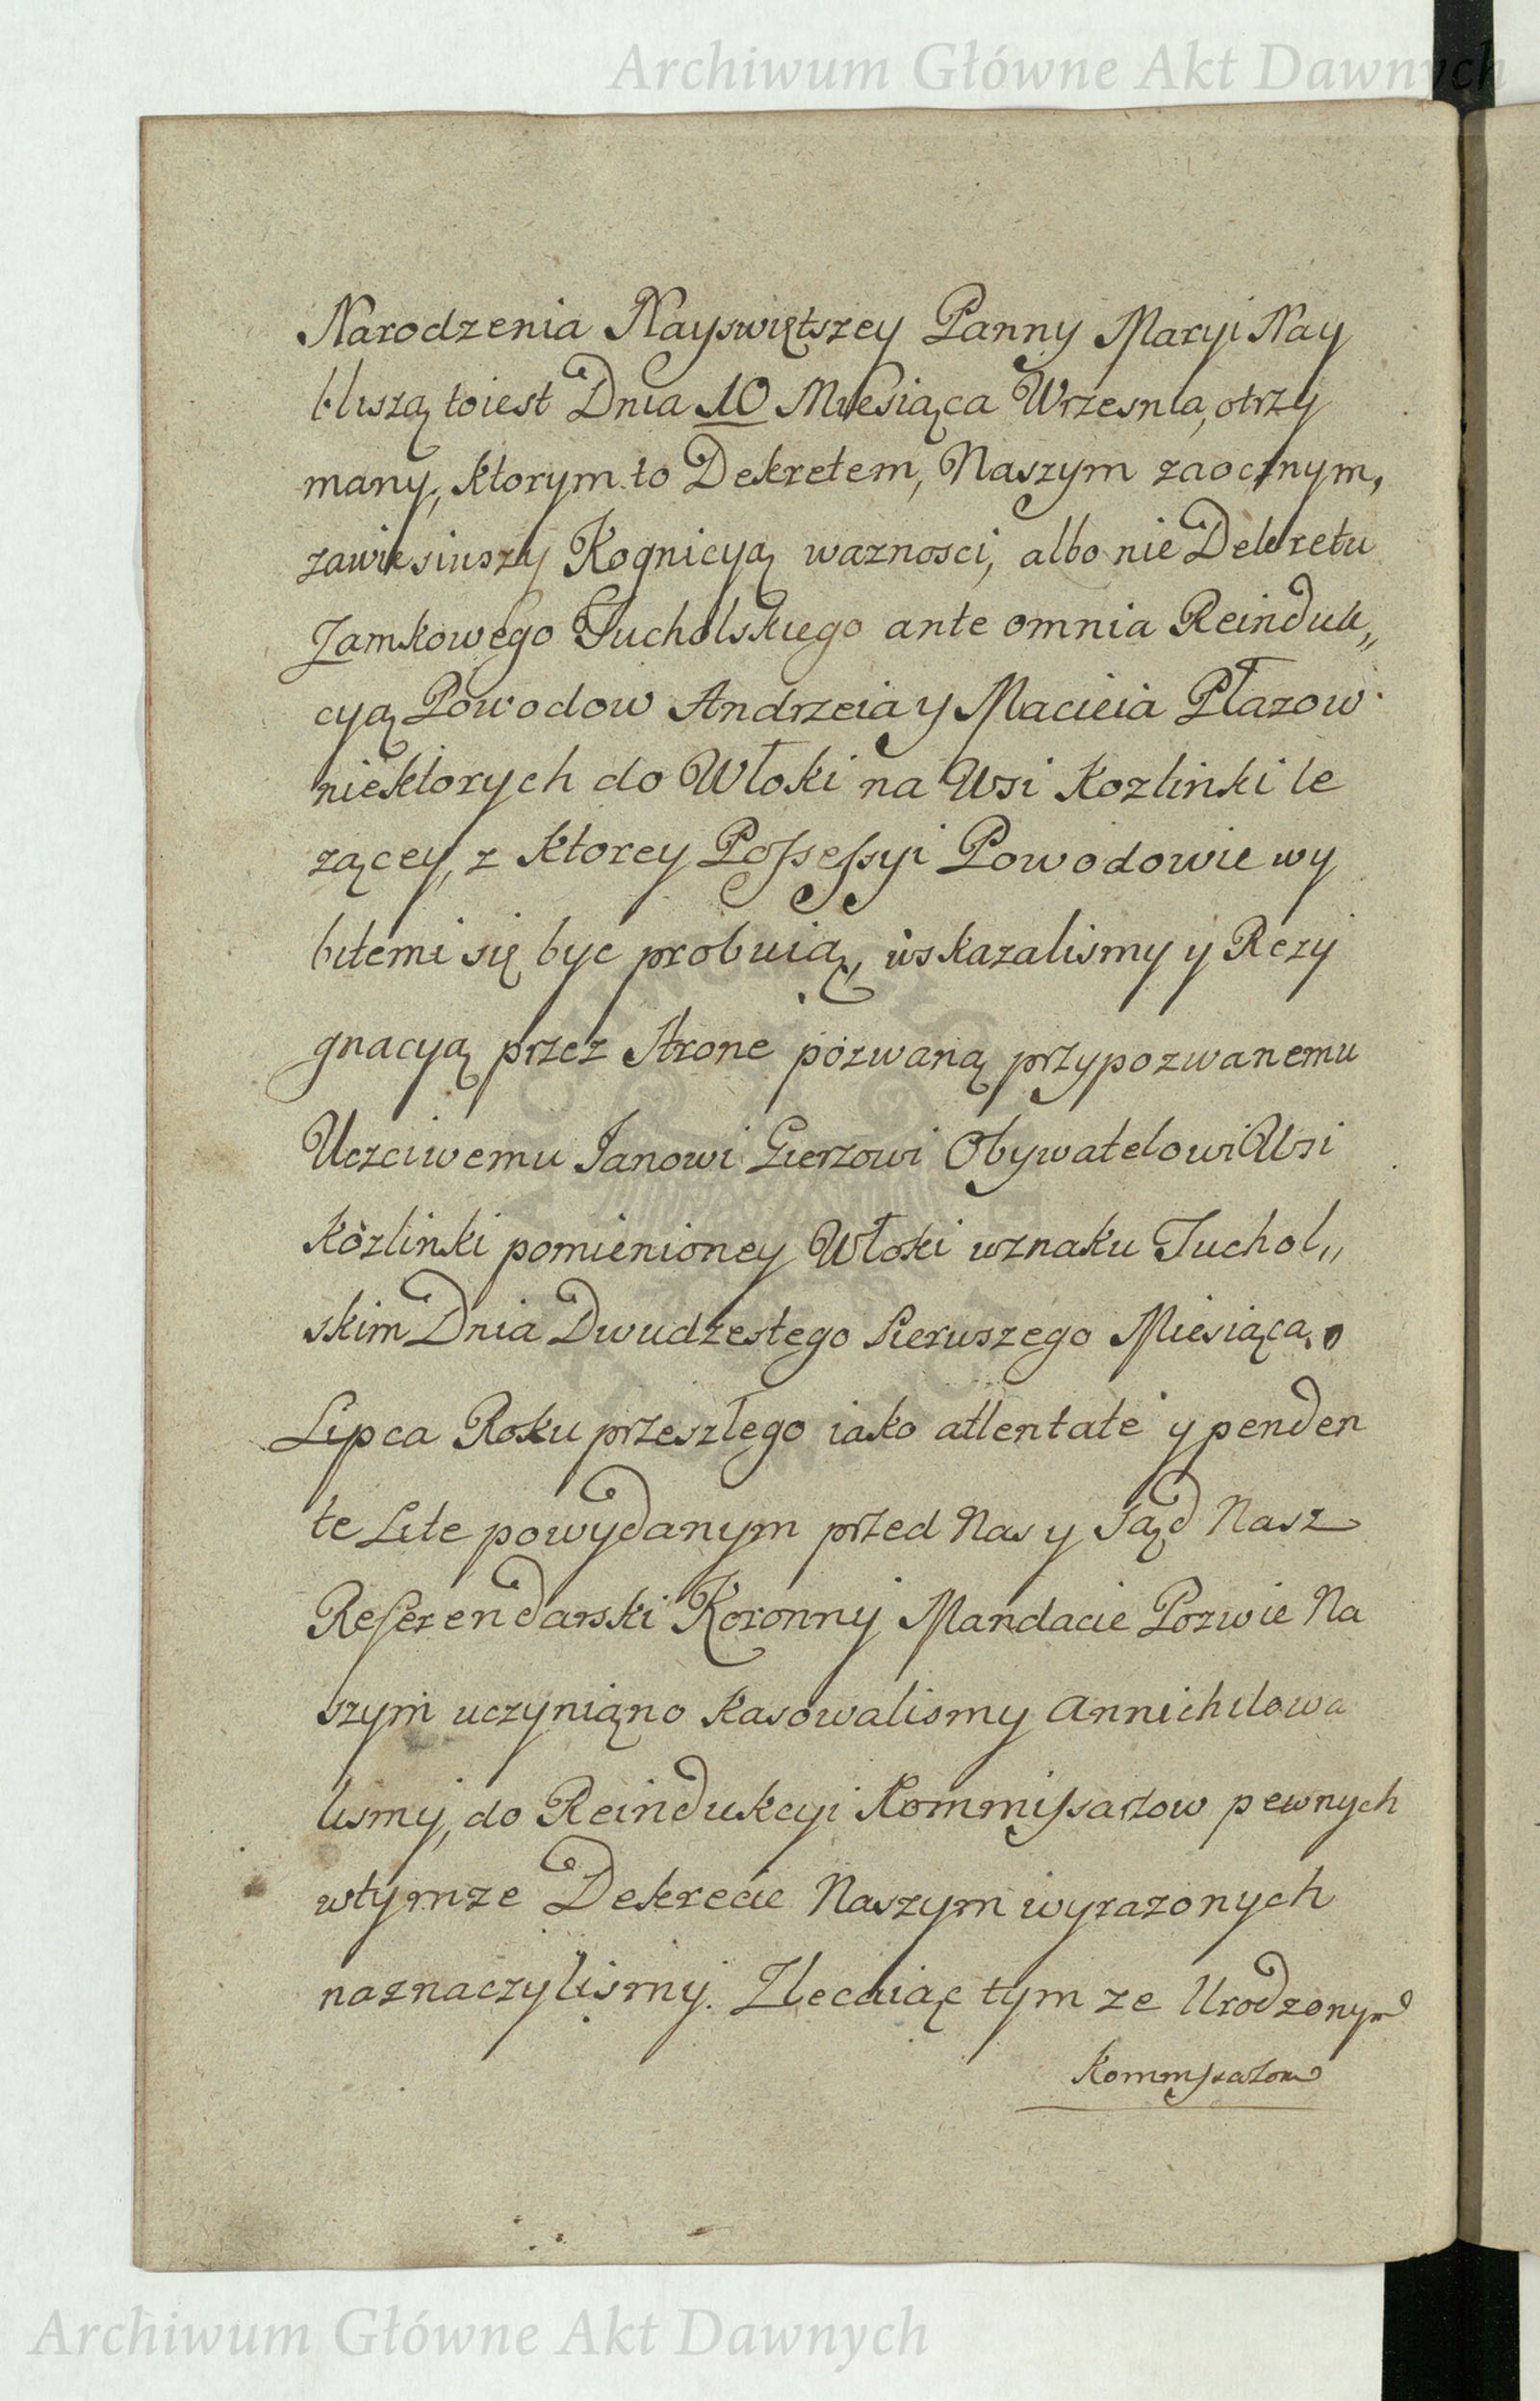 Archiwum Główne Akt Dawnych
Narodzenia Nayswiętszey Panny Maryi Nay
bliszą toiest Dnia 10 Miesiąca Wrzesnia, otrzy
many, ktorym to Dekretem, Naszym zaocznym,
zawiesiwszy Kognicyą waznosci, albo nie Dekretu
Zamkowego Tucholskiego ante omnia Reinduk„
cyą Powodow Andrzeia y Macieia Płazow
niektorych do Włoki na Wsi Kozlinki le
zącey, z ktorey Possessyi Powodowie wy
bitemi się byc probuią, wskazalismy y Rezy
gnacyą przez Strone pozwaną przypozwanemu
Uczciwemu Janowi Gierzowi Obywatelowi Wsi
Kozlinki pomienioney Włoki wznaku Tuchol„
skim Dnia Dwudzestego Pierwszego Miesiąca
Lipca Roku przeszłego iako attentate y penden
te Lite powydanym przed Nas y Sąd Nasz
Referendarski Koronny Mandacie Pozwie Na
szym uczyniąno kasowalismy annichilowa
lismy, do Reindukcyi Kommissarzow pewnych
wtymze Dekrecie Naszym wyrazonych
naznaczylismy. Zlecaiąc tym ze Urodzonym
Kommissarzom
Archiwum Główne Akt Dawnych